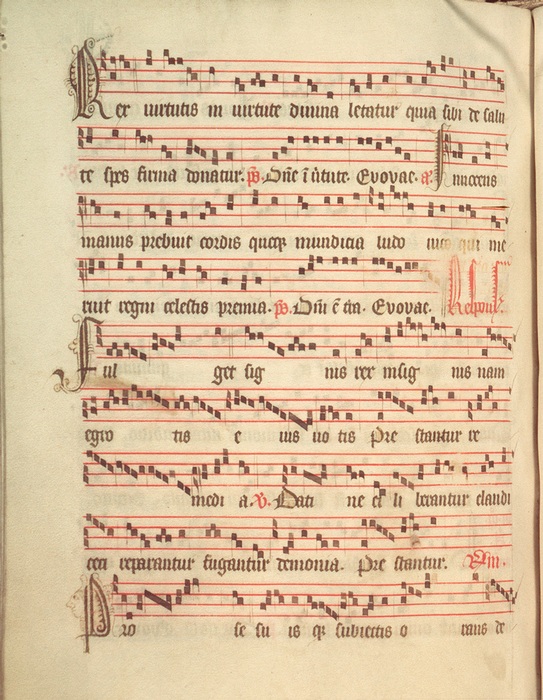 Rex uirtutis in uirtute diuina letatur quia sibi de salu
te spes firma donatur. ps. Dñe ĩ ũtute. Evovae. a. Innocens
manus prebuit cordis queqʒ mundicia ludo iuco qui me
ruit regni celestis premia. ps. Dñi ẽ t̃ra. Evovae. Respons.
Ful get sig nis rex insig nis nam
egro tis e ius uo tis Pre stantur re
medi a. V. Dati ne et li berantur claudi
ceci reparantur fugantur demonia. Pre stantur.
Pro se su is qʒ subiectis o rans de